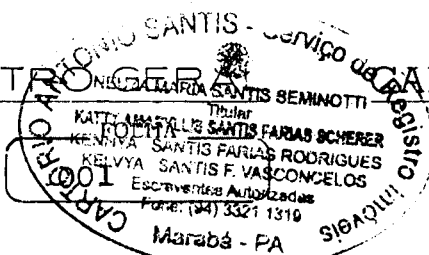 CARTÓRIO ANTONIO SANTIS - Serviço de Registro Imóveis
TRO GERA
NELCIA MARIA SANTIS SEMINOTTI
Titular
KATTY AMARYLLIS SANTIS FARIAS SCHERER
FOLHA
KENNYA SANTIS FARIAS RODRIGUES
KELVYA SANTIS F. VASCONCELOS
001
Escreventes Autorizadas
Fone: (94) 3321 1319
Marabá - PA